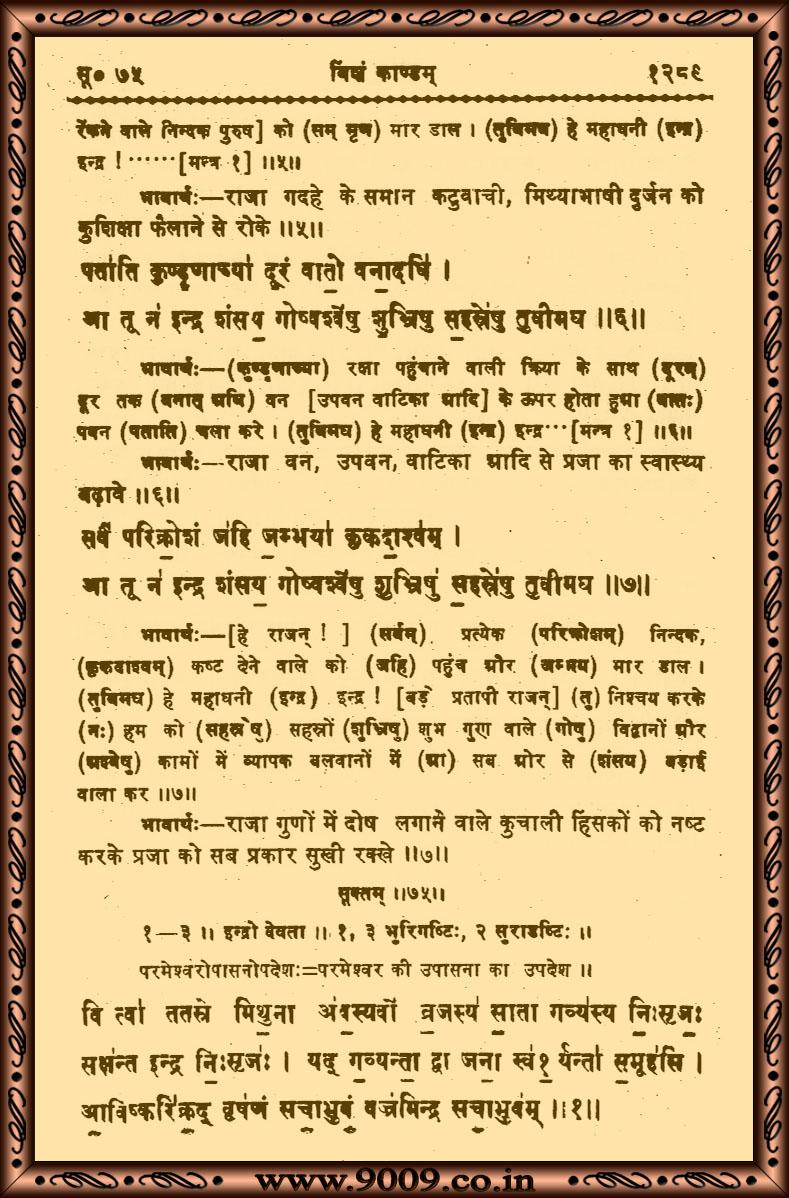 सू० ७५ विंशं काण्डम् १२८९
रेंकने वाले निन्दक पुरुष] को (सम् मृण) मार डाल । (तुविमघ) हे महाधनी (इन्द्र)
इन्द्र ! ······[मन्त्र १] ॥५॥
भावार्थः—राजा गदहे के समान कटुवाची, मिथ्याभाषी दुर्जन को
कुशिक्षा फैलाने से रोके ॥५॥
पता॑ति कुण्डृणाच्या॑ दू॒रं वातो॒ वना॒दधि॑ ।
आ तू न॑ इन्द्र शंसय॒ गोष्वश्वे॑षु शु॒भ्रिषु॑ स॒हस्रे॑षु तुवीमघ ॥६॥
भावार्थः—(कुण्डृणाच्या) रक्षा पहुंचाने वाली क्रिया के साथ (दूरम्)
दूर तक (वनात् अधि) वन [उपवन वाटिका आदि] के ऊपर होता हुआ (वातः)
पवन (पताति) चला करे । (तुविमघ) हे महाधनी (इन्द्र) इन्द्र···[मन्त्र १] ॥६॥
भावार्थः—राजा वन, उपवन, वाटिका आदि से प्रजा का स्वास्थ्य
बढ़ावे ॥६॥
सर्वं॑ परिक्रो॒शं ज॑हि ज॒म्भया॑ कृकदा॒श्व॑म् ।
आ तू न॑ इन्द्र शंसय॒ गोष्वश्वे॑षु शु॒भ्रिषु॑ स॒हस्रे॑षु तुवीमघ ॥७॥
भावार्थः—[हे राजन् ! ] (सर्वम्) प्रत्येक (परिक्रोशम्) निन्दक,
(कृकदाश्वम्) कष्ट देने वाले को (जहि) पहुंच और (जम्भय) मार डाल ।
(तुविमघ) हे महाधनी (इन्द्र) इन्द्र ! [बड़े प्रतापी राजन्] (तु) निश्चय करके
(नः) हम को (सहस्रेषु) सहस्रों (शुभ्रिषु) शुभ गुण वाले (गोषु) विद्वानों और
(अश्वेषु) कामों में व्यापक बलवानों में (आ) सब ओर से (शंसय) बड़ाई
वाला कर ॥७॥
भावार्थः—राजा गुणों में दोष लगाने वाले कुचाली हिंसकों को नष्ट
करके प्रजा को सब प्रकार सुखी रक्खे ॥७॥
सूक्तम् ॥७५॥
१—३ ॥ इन्द्रो देवता ॥ १, ३ भुरिगष्टिः, २ सुराडष्टिः ॥
परमेश्वरोपासनोपदेशः=परमेश्वर की उपासना का उपदेश ॥
वि त्वा॑ ततस्रे मिथु॒ना अ॑व॒स्यवो॑ व्र॒जस्य॑ सा॒ता गव्य॑स्य निः॒सृजः॒
सक्ष॑न्त इन्द्र निः॒सृजः॑ । यद् ग॒व्यन्ता॒ द्वा जना॒ स्व॑१॒र्यन्ता॑ स॒मूह॑सि ।
आ॒विष्करि॑क्र॒द् वृष॑णं सचा॒भुवं॒ वज्र॑मिन्द्र सचा॒भुव॑म् ॥१॥
www.9009.co.in